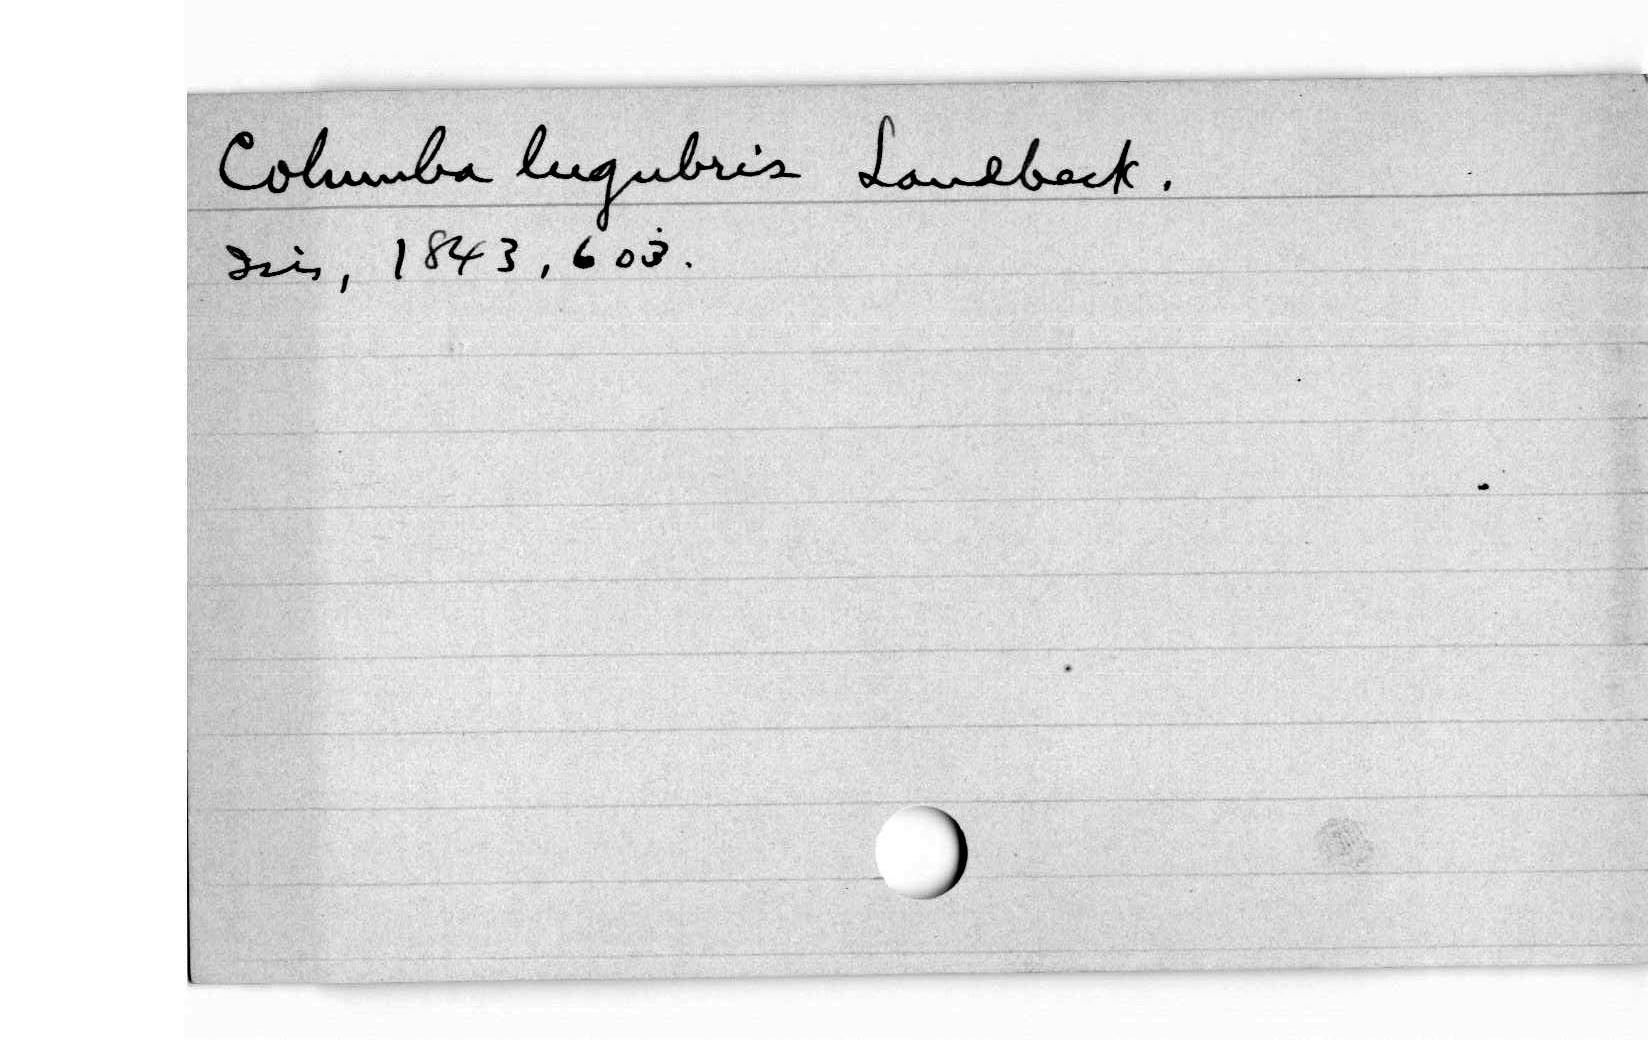 Columba lugubris Landbeck.
Isis, 1843, 603.